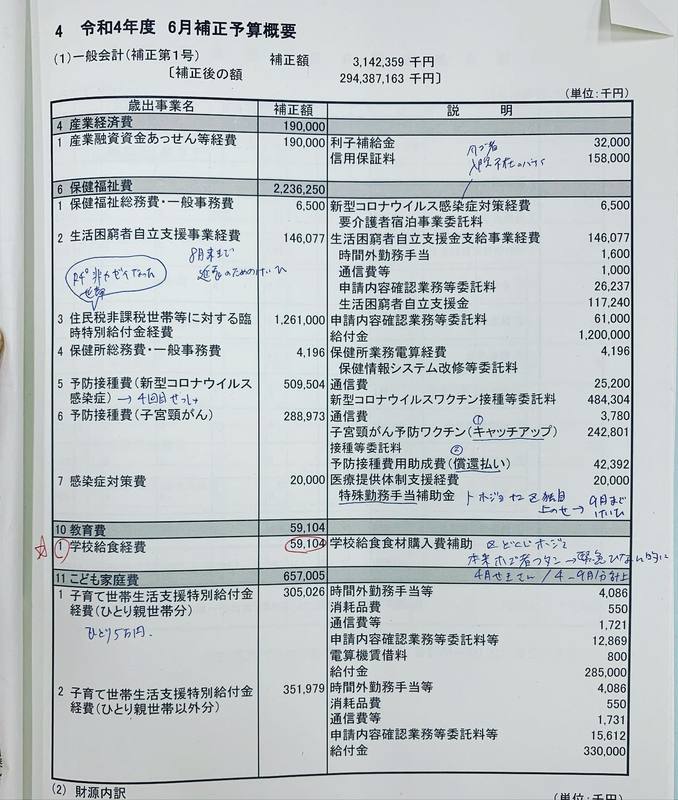 4 令和4年度 6月補正予算概要
(1)一般会計(補正第1号) 補正額 3,142,359 千円
〔補正後の額 294,387,163 千円〕
(単位:千円)
歳出事業名 補正額 説 明
4 産業経済費 190,000
1 産業融資資金あっせん等経費 190,000 利子補給金 32,000
信用保証料 158,000
6 保健福祉費 2,236,250
1 保健福祉総務費・一般事務費 6,500 新型コロナウイルス感染症対策経費 6,500
要介護者宿泊事業委託料
2 生活困窮者自立支援事業経費 146,077 生活困窮者自立支援金支給事業経費 146,077
8月末まで
時間外勤務手当 1,600
延長のための
通信費等 1,000
申請内容確認業務等委託料 26,237
世帯
生活困窮者自立支援金 117,240
3 住民税非課税世帯等に対する臨時特別給付金経費 1,261,000 申請内容確認業務等委託料 61,000
給付金 1,200,000
4 保健所総務費・一般事務費 4,196 保健所業務電算経費 4,196
保健情報システム改修等委託料
5 予防接種費(新型コロナウイルス 509,504 通信費 25,200
感染症) → 4回目せっしゅ 新型コロナウイルスワクチン接種等委託料 484,304
6 予防接種費(子宮頸がん) 288,973 通信費 3,780
①
子宮頸がん予防ワクチン(キャッチアップ) 242,801
接種等委託料
②
予防接種費用助成費(償還払い) 42,392
7 感染症対策費 20,000 医療提供体制支援経費 20,000
特殊勤務手当補助金 区独自
上のせ → 9月まで
10 教育費 59,104
1 学校給食経費 59,104 学校給食食材購入費補助
11 こども家庭費 657,005
1 子育て世帯生活支援特別給付金 305,026 時間外勤務手当等 4,086
経費(ひとり親世帯分) 消耗品費 550
ひとり5万円. 通信費等 1,721
申請内容確認業務等委託料等 12,869
電算機賃借料 800
給付金 285,000
2 子育て世帯生活支援特別給付金 351,979 時間外勤務手当等 4,086
経費(ひとり親世帯以外分) 消耗品費 550
通信費等 1,731
申請内容確認業務等委託料等 15,612
給付金 330,000
(2) 財源内訳
(単位:千円)